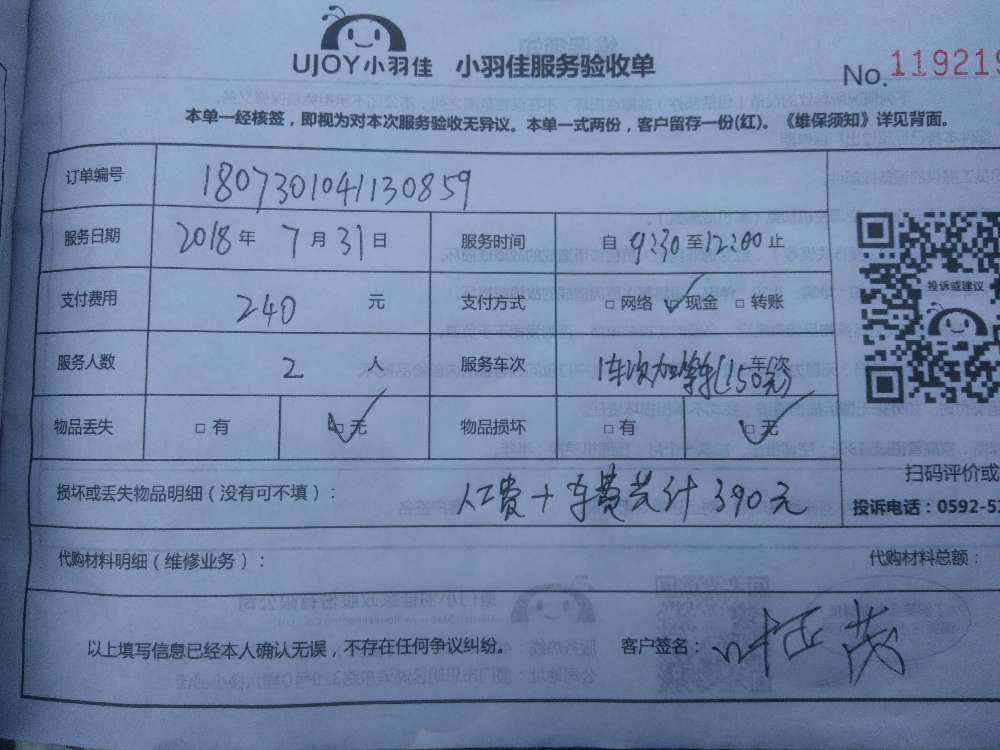 UJOY小羽佳 小羽佳服务验收单
No. 119219
本单一经核签，即视为对本次服务验收无异议。本单一式两份，客户留存一份(红)。《维保须知》详见背面。
订单编号 1807301041130859
服务日期 2018年 7月31日 服务时间 自9:30至12:00止
支付费用 240 元 支付方式 □网络 ☑现金 □转账
投诉或建议
服务人数 2 人 服务车次 1车次加拿车(150元) 车次
物品丢失 □有 ☑无 物品损坏 □有 ☑无
扫码评价或
损坏或丢失物品明细（没有可不填）： 人工费+车费共计390元
投诉电话：0592-52
代购材料明细（维修业务）： 代购材料总额：
以上填写信息已经本人确认无误，不存在任何争议纠纷。 客户签名：